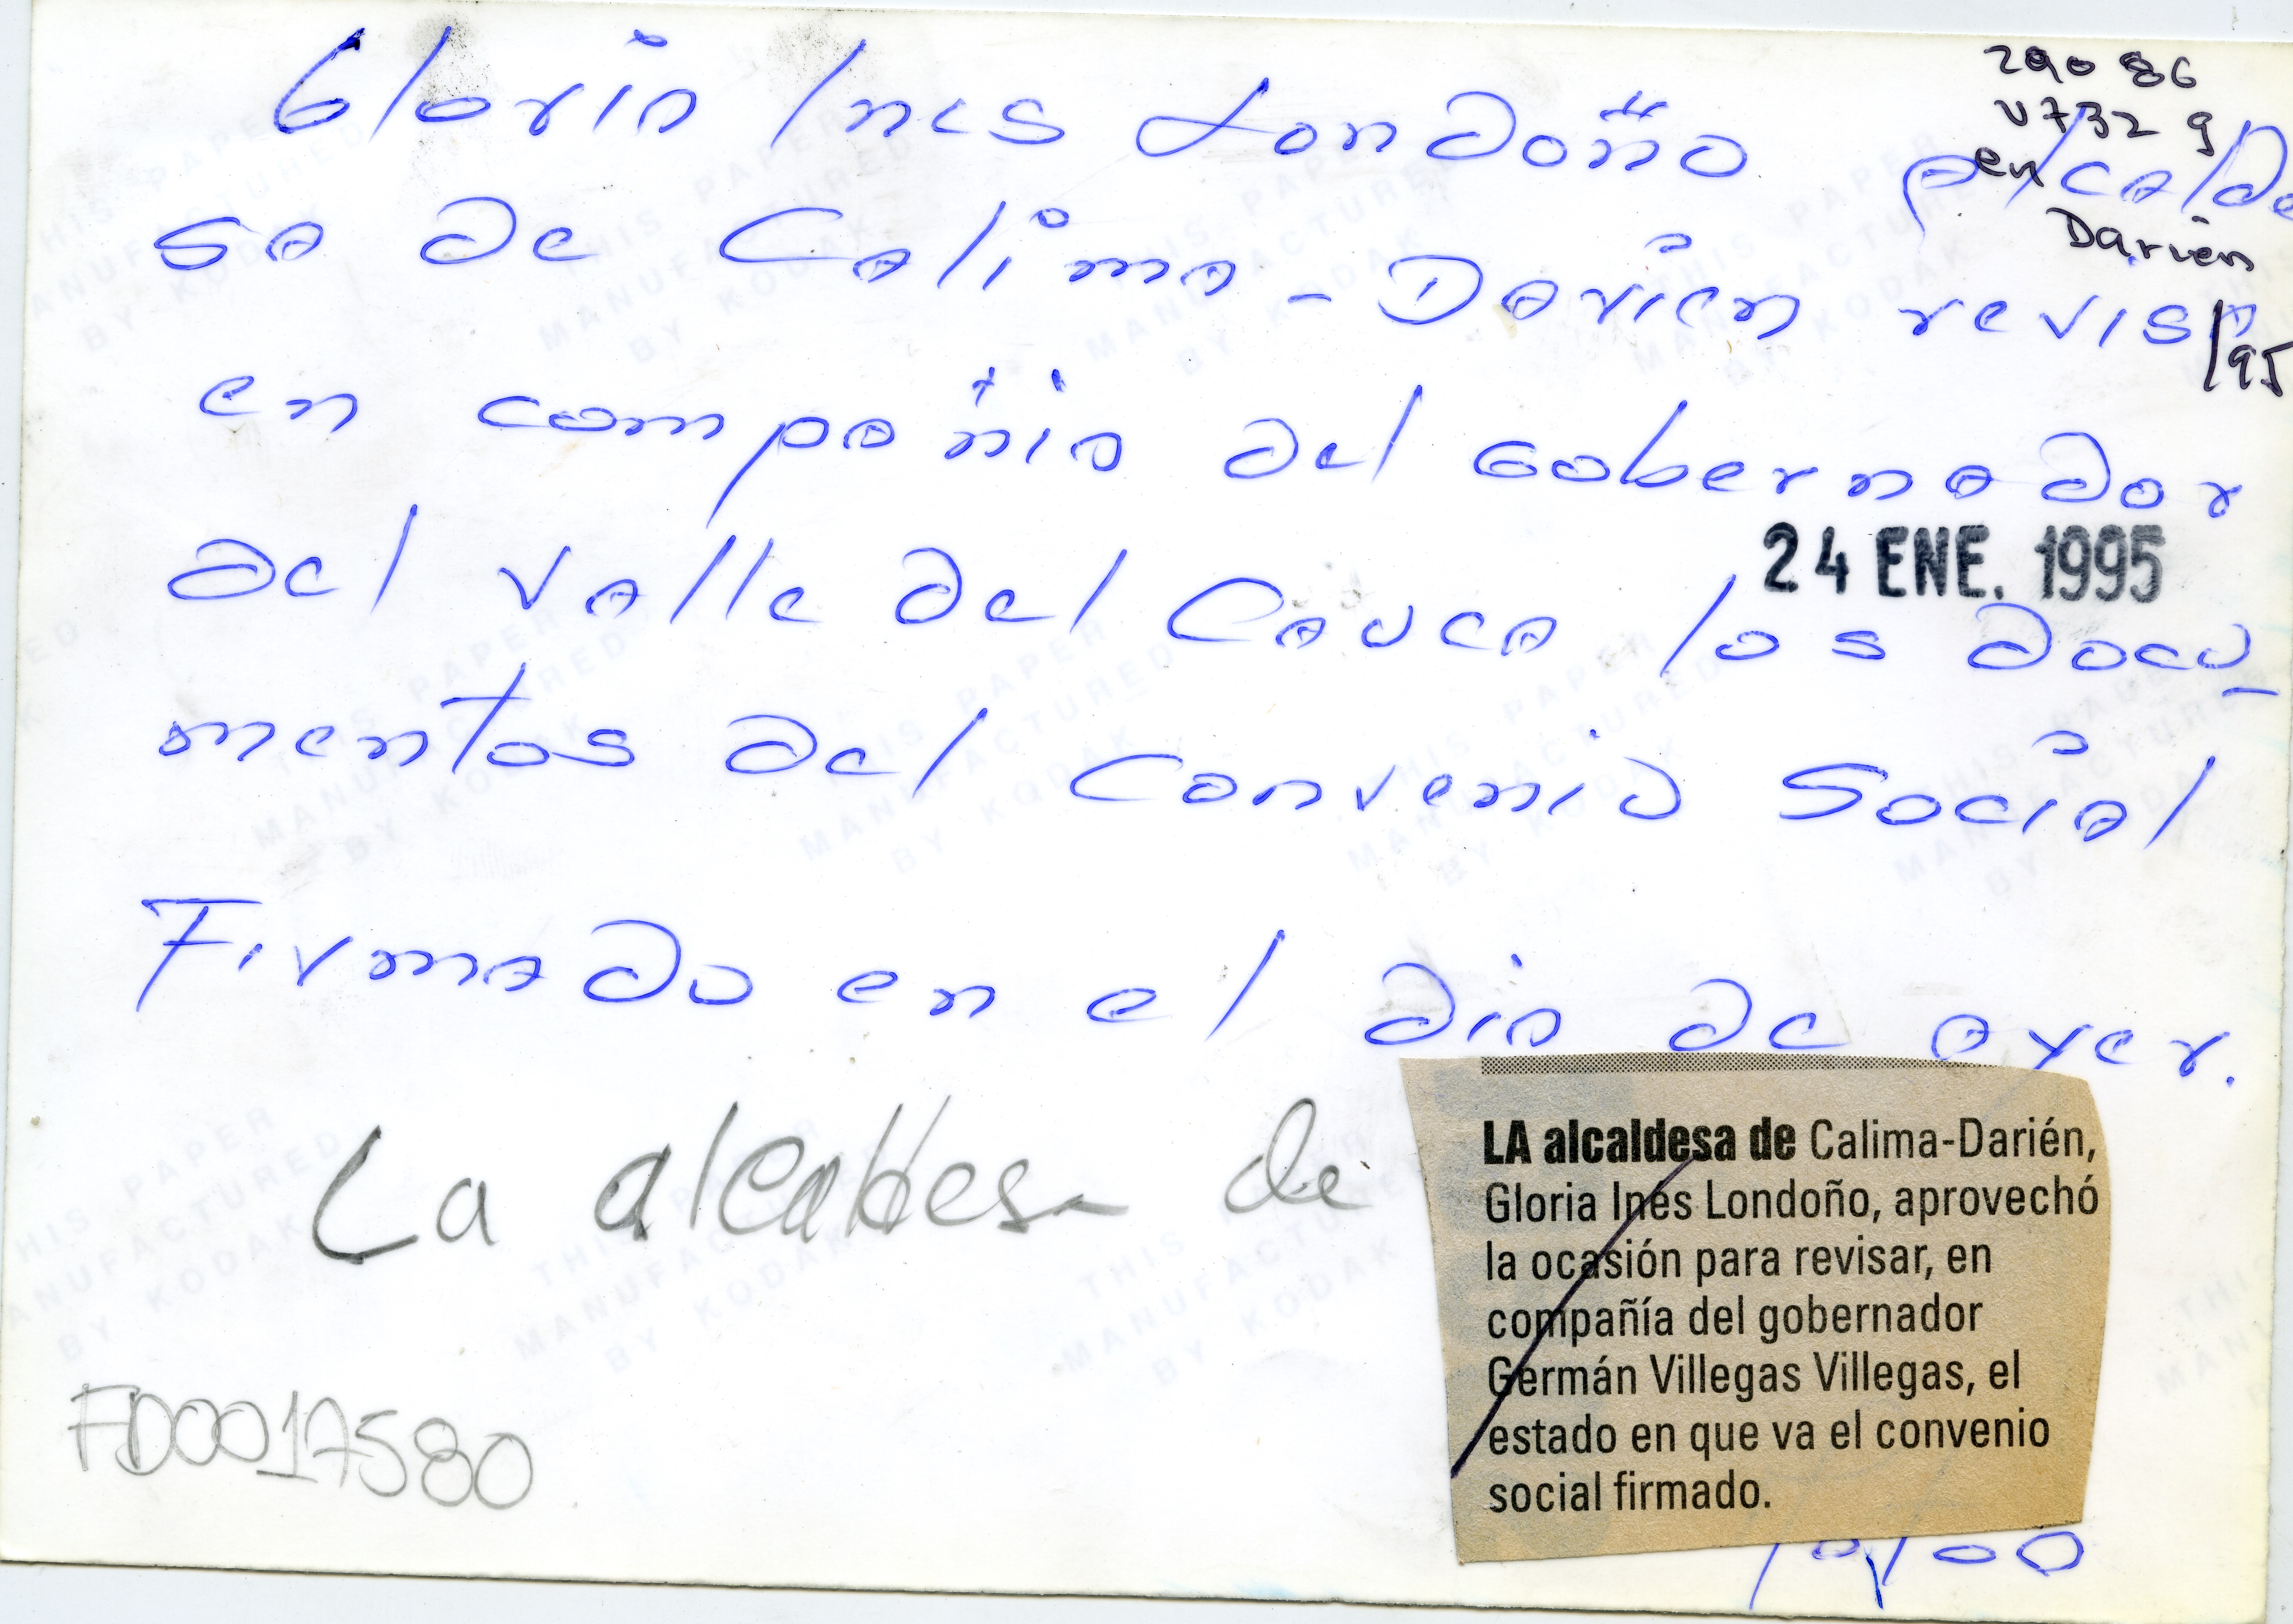 290 86
V732 g
en
Darien
/95
Gloria Ines Londoño Alcalde
sa de Calima - Darien revisa
en compañia del Gobernador
24 ENE. 1995
del Valle del Cauca los docu_
mentos del Convenio Social
Firmado en el dia de ayer.
La alcaldesa de
LA alcaldesa de Calima-Darién,
Gloria Inés Londoño, aprovechó
la ocasión para revisar, en
compañía del gobernador
Germán Villegas Villegas, el
estado en que va el convenio
social firmado.
FD0017580
THIS PAPER
MANUFACTURED
BY KODAK